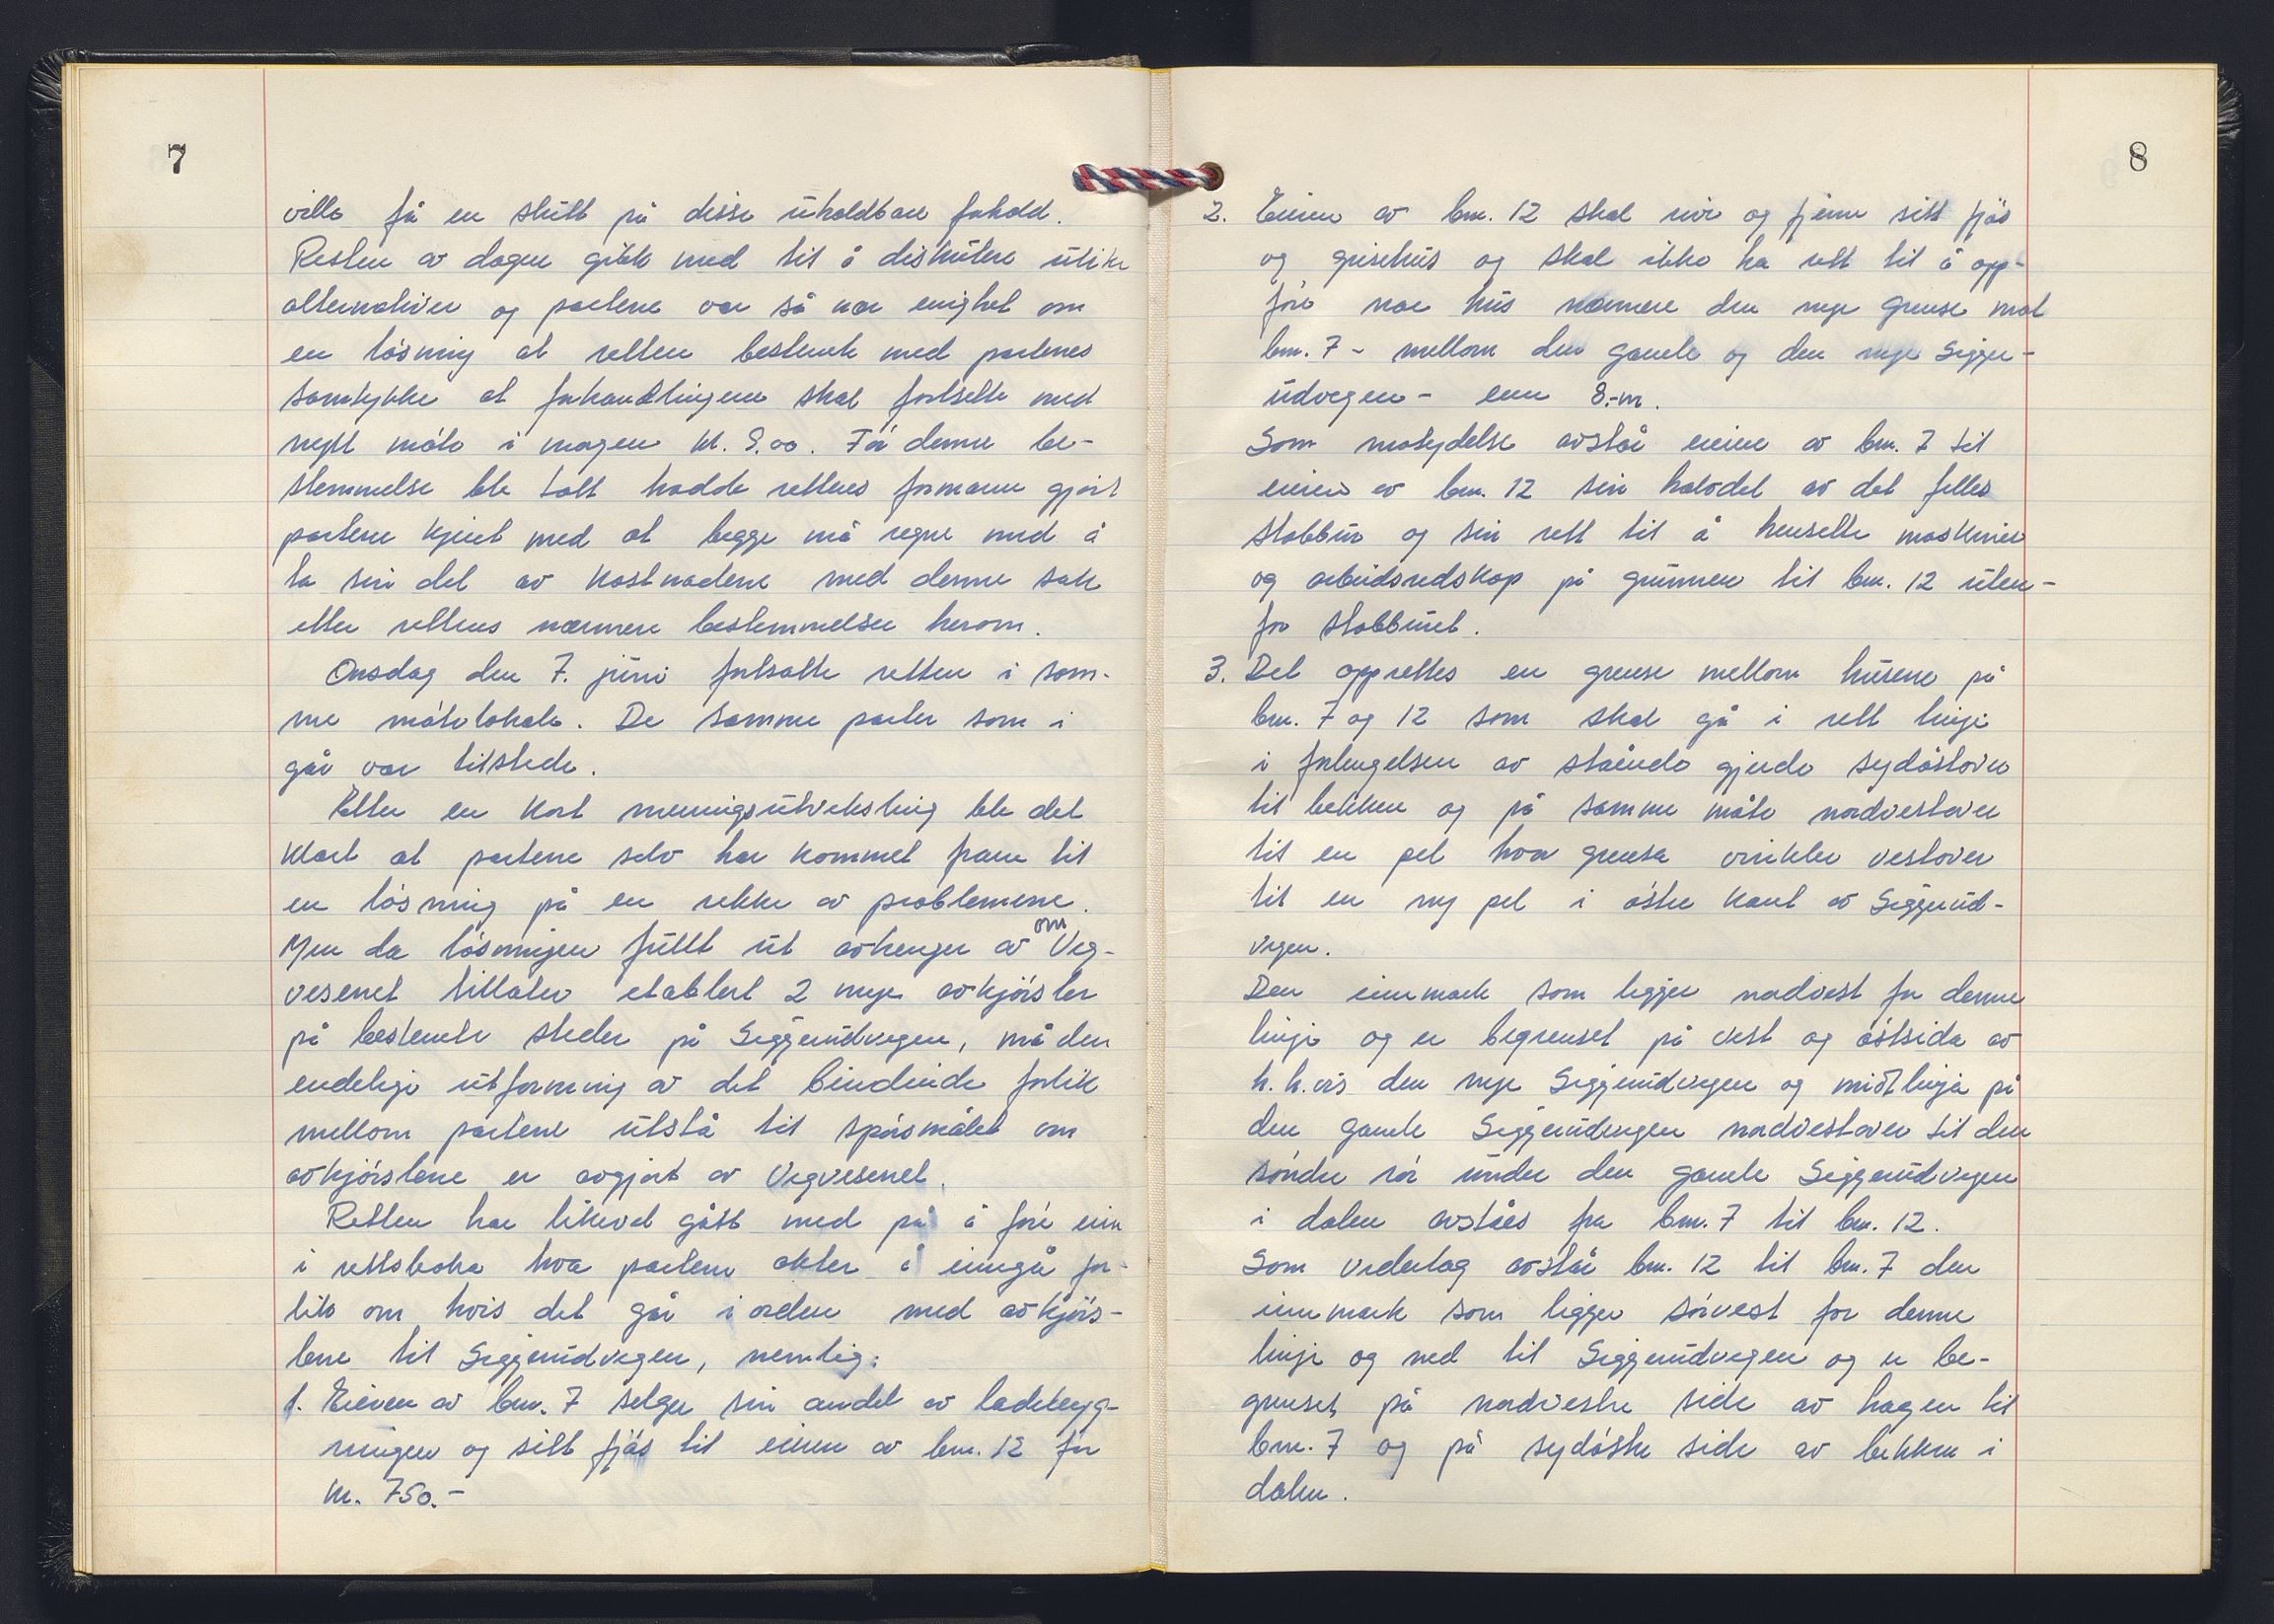 7
ville få en slutt på disse uholdbare forhold.
Resten av dagen gikk med til å diskutere ulike
alternativer og partene var så nær enighet om
en løsning at retten bestemte med partenes
samtykke at forhandlingene skal fortsette med
nytt møte i morgen kl. 9.00. Før denne be-
stemmelse ble tatt hadde rettens formann gjort
partene kjent med at begge må regne med å
ta sin del av kostnadene med denne sak
etter rettens nærmere bestemmelser herom.
Onsdag den 7. juni fortsatte retten i sam-
me møtelokale. De samme parter som i
går var tilstede.
Etter en kort meningsutveksling ble det
klart at partene selv har kommet fram til
en løsning på en rekke av problemene.
Men da løsningen fullt ut avhenger av om Veg-
vesenet tillater etablert 2 nye avkjørsler
på bestemte steder på Siggerudvegen, må den
endelige utforming av det bindende forlik
mellom partene utstå til spørsmålet om
avkjørslene er avgjort av Vegvesenet.
Retten har likevel gått med på å føre inn
i rettsboka hva partene akter å inngå for-
lik om hvis det går i orden med avkjørs-
lene til Siggerudvegen, nemlig:
1. Eieren av bnr. 7 selger sin andel av ladebyg-
ningen og sitt fjøs til eieren av bnr. 12 for
kr. 750.-
8
2. Eieren av bnr. 12 skal rive og fjerne sitt fjøs
og grisehus og skal ikke ha rett til å opp-
føre noe hus nærmere den nye grense mot
bnr. 7 - mellom den gamle og den nye Sigge-
rudvegen - enn 8.-m.
Som motydelse avstår eieren av bnr. 7 til
eieren av bnr. 12 sin halvdel av det felles
stabbur og sin rett til å hensette maskiner
og arbeidsredskap på grunnen til bnr. 12 uten-
for stabburet.
3. Det opprettes en grense mellom husene på
bnr. 7 og 12 som skal gå i rett linje
i forlengelsen av stående gjerde sydøstover
til bekken og på samme måte nordvestover
til en pel hvor grensa vinkler vestover
til en ny pel i østre kant av Siggerud-
vegen.
Den innmark som ligger nordvest for denne
linje og er begrenset på vest og østsida av
h.h.vis den nye Siggerudvegen og midtlinja på
den gamle Siggerudvegen nordvestover til den
søndre rør under den gamle Siggerudvegen
i dalen avståes fra bnr. 7 til bnr. 12.
Som vederlag avstår bnr. 12 til bnr. 7 den
innmark som ligger sørvest for denne
linje og ned til Siggerudvegen og er be-
grenset på nordvestre side av hagen til
bnr. 7 og på sydøstre side av bekken i
dalen.